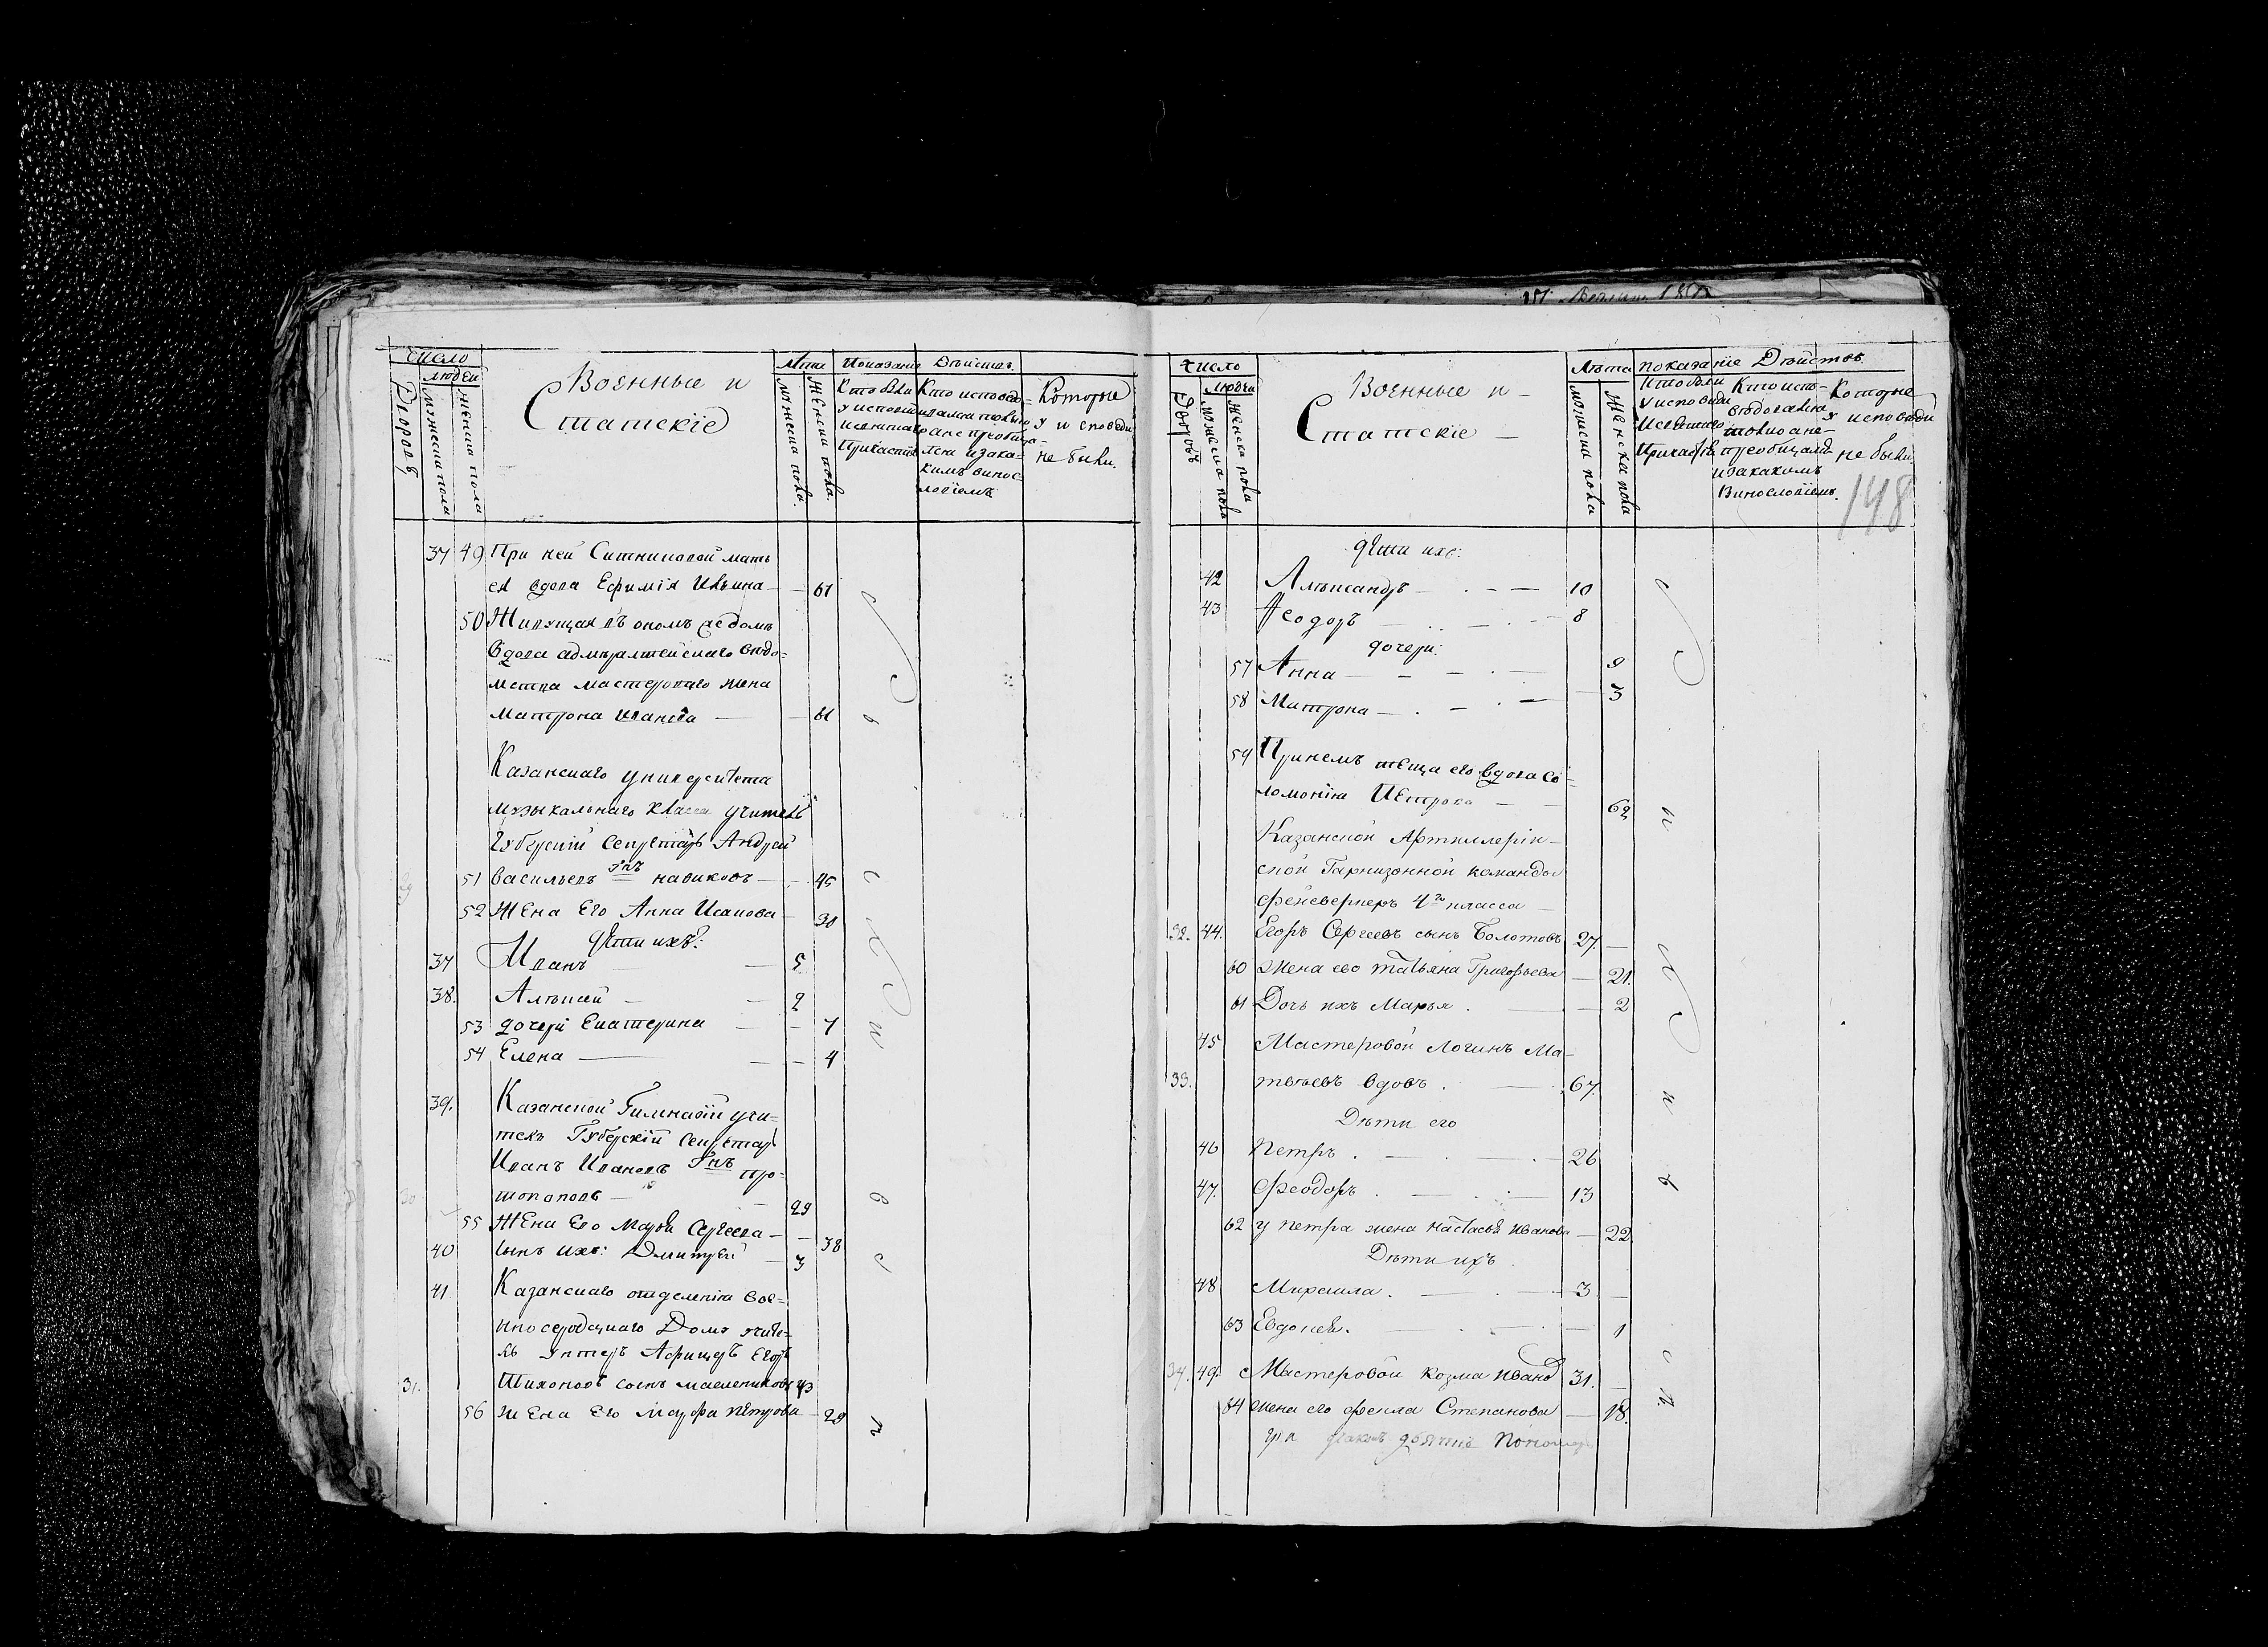 Число
людей
Дворовъ
мужеска пола
женска пола
Военные и
Статскіе
Лѣта
мужеска пола.
женска пола.
Показаніе Дѣйствъ
Кто были
у исповѣди
и святаго
Причастія
Кто исповѣдо-
вался токмо
а не приобща-
лся и зака-
кимъ винос-
ловіемъ
Которые
у исповѣди
не были.
37 49 При ней Ситниковой мать
ея вдова Ефимія Ильина — 61
50 Живущая въ ономъ же домѣ
вдова адмиралтейскаго вѣдо-
мства мастероваго жена
Матрона Иванова — 61
Казанскаго университета
музыкальнаго класса учитель
Губерскій Секретарь Андрей
29 51 Васильевъ Гнъ Новиковъ — 45
52 Жена Его Анна Исакова — 30
дѣти ихъ:
37 Иванъ — 5
38. Алѣксей — 2
53 дочери Екатерина — 7
54 Елена — 4
39. Казанской Гимназіи учи-
тель Губерскій Секретарь
Иванъ Ивановъ Гнъ про-
30 топоповъ — 29
55 Жена Его Марья Сергеева — 38
40 сынъ ихъ: Дмитрей 3
41 Казанскаго отделенія вое-
ино сиродскаго Дома учите-
ль унтеръ Афицеръ Егоръ
31. Тихоновъ сынъ масленниковъ 43
56 жена его Марфа Петрова — 29
Число
людей
Дворовъ
мужеска пола
женска пола
Военные и
Статскіе —
Лѣта
мужеска пола
женска пола
показаніе Дѣйствъ.
Кто были
у исповѣди
и святаго
Причастія
Кто испо-
вѣдовался
токмо а не
преобщался
и закакимъ
винословіемъ.
Которые
у исповѣди
не были.
148
дѣти ихъ:
42 Алѣксандръ — 10
43 Феодоръ — 8
дочери:
57 Анна — 9
58 Матрона — 3
59 При немъ теща его вдова Со-
ломонія Петрова — 62
Казанской Артиллерій-
ской Гарнизонной команды
фейеверкеръ 4го класса —
32. 44. Егоръ Сергеевъ сынъ Болотовъ 27. —
60 Жена его Татьяна Григорьева — 21.
61 Дочь ихъ Марья . — 2
45 Мастеровой Логинъ Ма-
33. твѣевъ вдовъ . — 67.
Дѣти его
46 Петръ . — 26
47. Феодоръ . — 13
62 у Петра жена Настасья Иванова — 22
Дѣти ихъ .
48 Михаила . — 3. —
63 Евдокея . — 1
34. 49. Мастеровой Козма Ивановъ 31. —
64 жена его Фекла Степанова — 18.